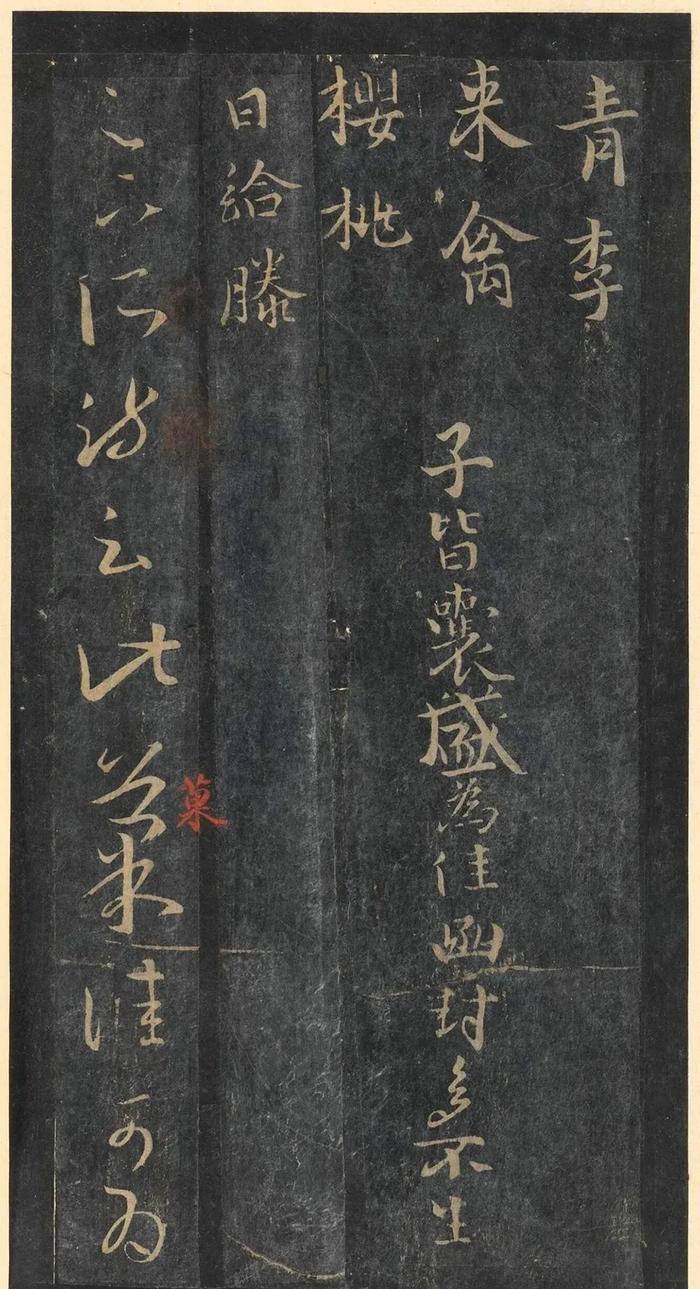 青李
来禽
櫻桃
日給滕
子皆囊盛為佳函封多不生
足下所疏云此菓佳可為
菓